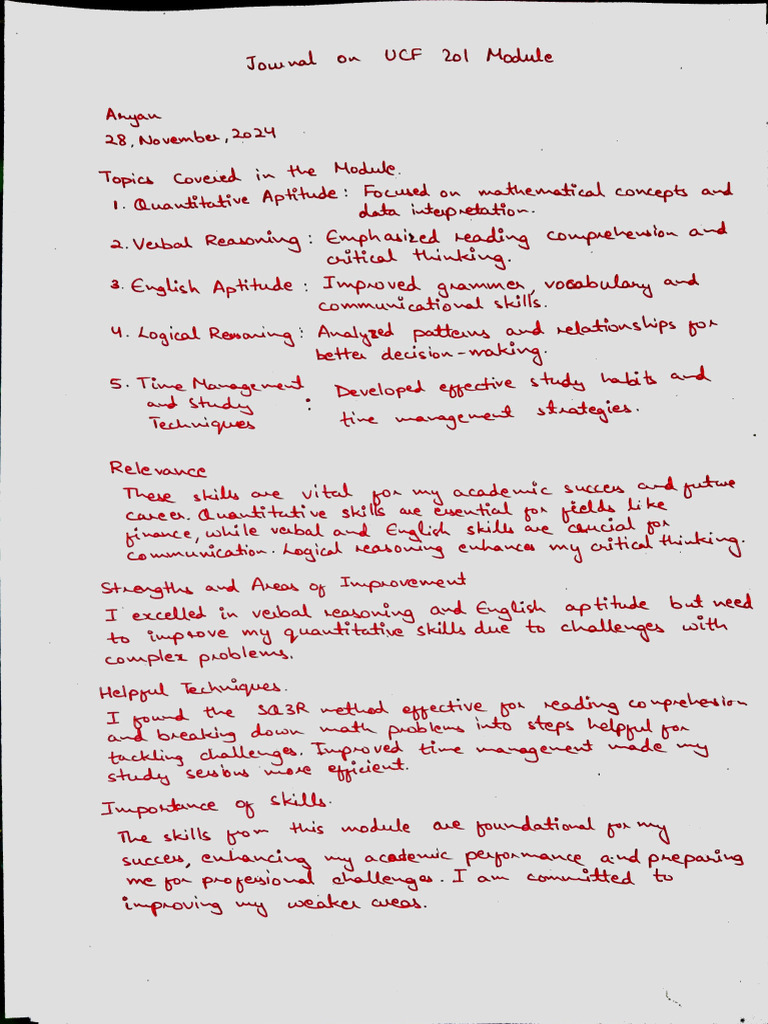 Journal on UCF 201 Module
Aryan
28, November, 2024
Topics Covered in the Module.
1. Quantitative Aptitude : Focused on mathematical concepts and
data interpretation.
2. Verbal Reasoning : Emphasized reading comprehension and
critical thinking.
3. English Aptitude : Improved grammer, vocabulary and
communicational skills.
4. Logical Reasoning : Analyzed patterns and relationships for
better decision-making.
5. Time Management
and Study : Developed effective study habits and
Techniques time management strategies.
Relevance
These skills are vital for my academic success and future
career. Quantitative skills are essential for fields like
finance, while verbal and English skills are crucial for
communication. Logical reasoning enhances my critical thinking.
Strengths and Areas of Improvement
I excelled in verbal reasoning and English aptitude but need
to improve my quantitative skills due to challenges with
complex problems.
Helpful Techniques.
I found the SQ3R method effective for reading comprehension
and breaking down math problems into steps helpful for
tackling challenges. Improved time management made my
study sessions more efficient.
Importance of skills.
The skills from this module are foundational for my
success, enhancing my academic performance and preparing
me for professional challenges. I am committed to
improving my weaker areas.